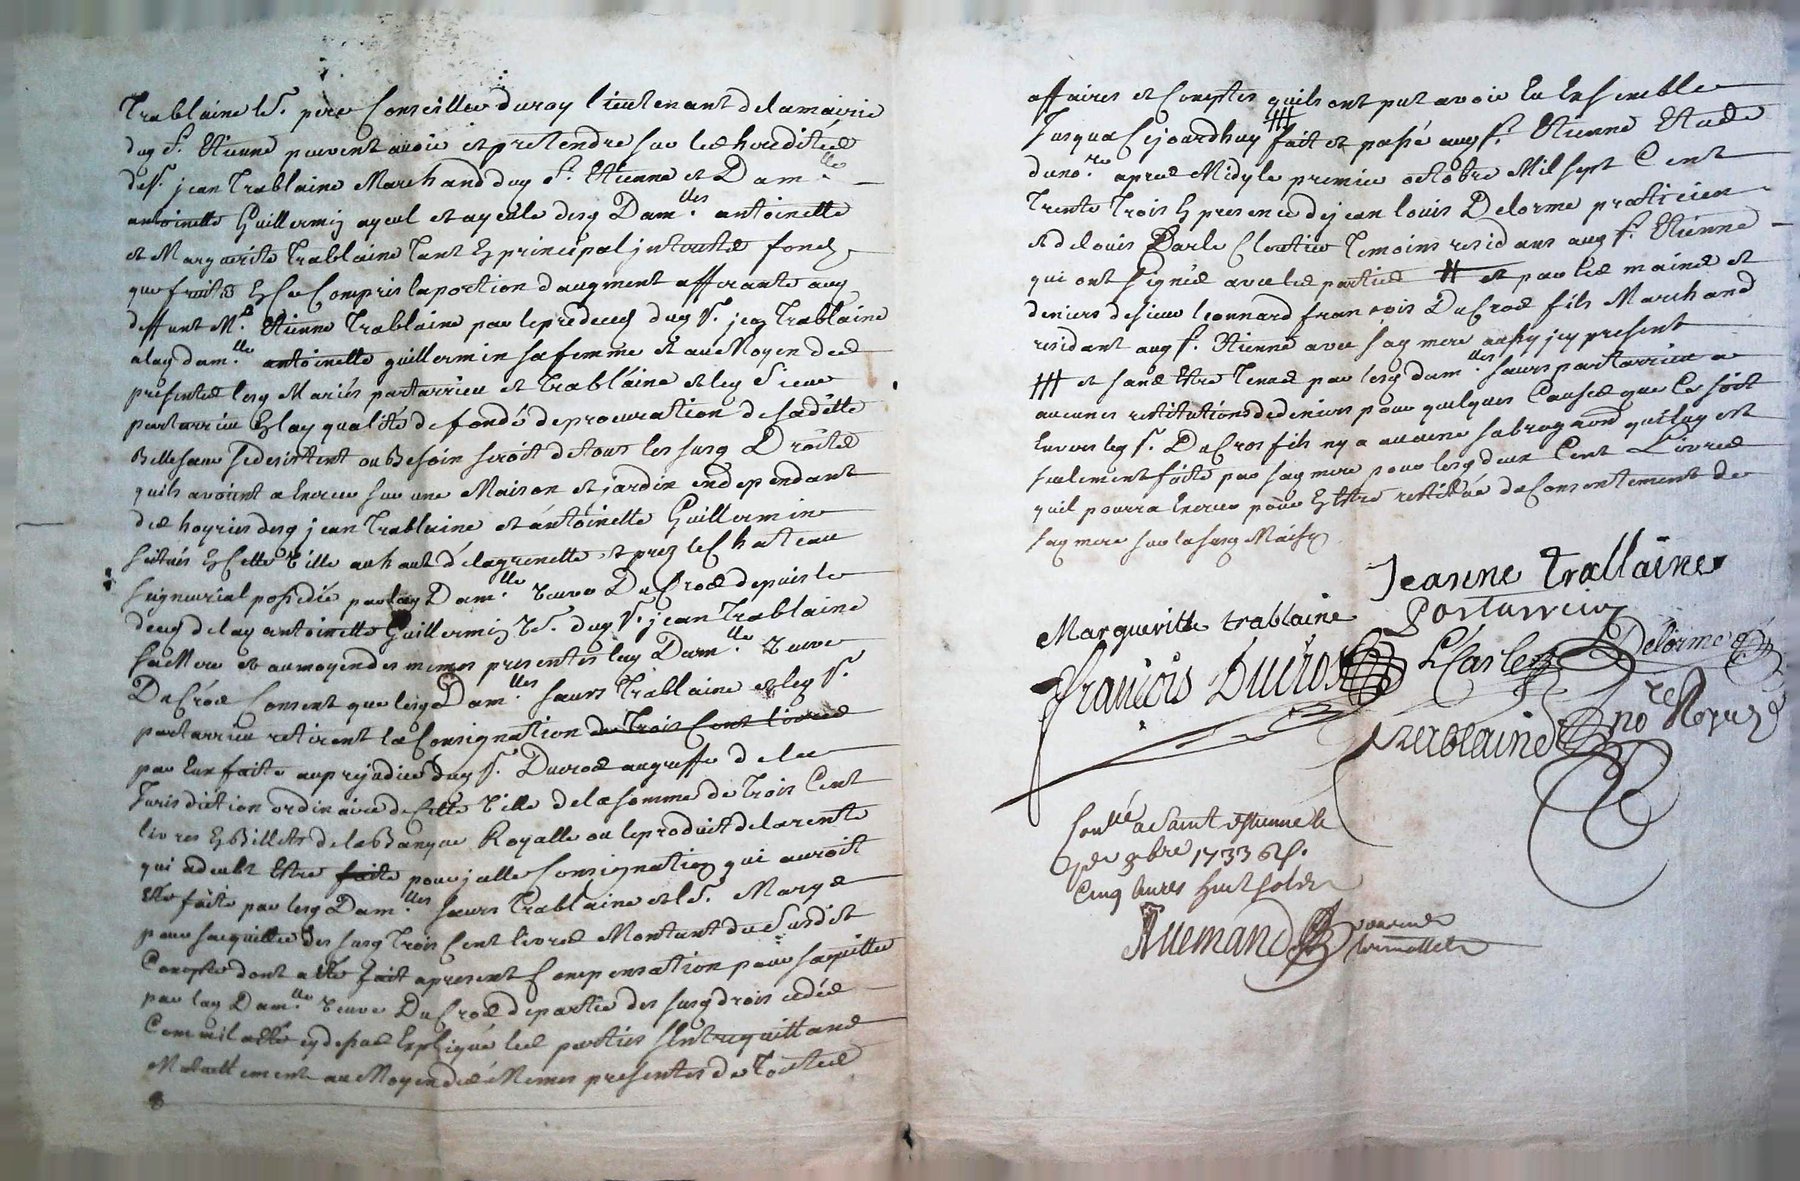 Trablaine le S.r pere Conseiller du roy lieutenant de la mairie
dug S.t Etienne peuvent avoir et pretendre sur les hereditées
de S.r jean Trablaine Marchand dug S.t Etienne et Dam.lle
antoinette Guillermin ayeul et ayeule desq Dam.lles antoinette
et Marguerite Trablaine tant En principal jnterets fonds
que fruits En Ce Compris la portion d'augment afferante aug
deffunt M.e Etienne Trablaine par le predeces dug S.r jean Trablaine
a lag dam.lle antoinette guillermin sa femme Et au Moyen des
presentes lesq Mariés partarrieu et Trablaine et leg Sieur
partarrieu En lag qualité de fondé de procuration de sadite
Bellesœur se desistent ou Besoin seroit de tous les susq Droites
quils avoient a Exercer sur une Maison et jardin endependant
des hoyries desq jean Trablaine et antoinette Guillermin
scitués En Cette Ville au haut de la grenette et prez le Chateau
seigneurial possedée par lag Dam.lle veuve DuCros depuis le
deces de lag antoinette Guillermin Ve. dug S.r jean Trablaine
sa Mere et au moyen des memes presentes lag Dam.lle Veuve
DuCros Consent que lesq Dam.lles sœurs Trablaine et leg S.r
partarrieu retirent la Consignation de Trois Cent livres
par Eux faite au prejudice dug S.r Ducros au greffe de la
Jurisdiction ordinaire de Cette Ville de la somme de Trois Cent
livres En Billets de la Banque Royalle ou le produit de la rente
qui a deubt Etre faite pour jcelle Consignation qui auroit
Ete faite par lesq Dam.lles sœurs Trablaine et le S.r Marge
pour s'acquitter des susq Trois Cent livres Montant du Susdit
Compte dont a Eté fait a present Compensation pour s'aquitter
par lag Dam.lle veuve DuCros de partie des susq drois cedés
Comme il a Eté cy dessus Expliqué les parties s'Entrequittans
Mutuellement au Moyen des Memes presentes de Toutes
affaires et Comptes quils ont put avoir Eu Ensemble
Jusqua Cejourdhuy ⧻ fait et passé aug S.t Etienne Etude
du no.re apres Midy le premier octobre Mil sept Cent
Trente Trois En presence de jean louis Delorme praticien
et de louis Carle Cloutier temoins residans aug S.t Etienne
qui ont signés avec les parties # et par les mains et
deniers de sieur leonnard françois DuCros fils Marchand
residant aug S.t Etienne avec sag mere aussy jcy present
⧻ et sans Etre Tenues par lesq dam.lles sœurs partarrieu a
aucunes restitutions de deniers pour quelques Causes que Ce soit
Envers leg S.r DuCros fils ny a aucune subrogaon qui luy est
seulement faite par sag mere pour lesq deux Cent Livres
quil pourra Exercer pour En Etre restitué du Consentement de
sag mere sur la susq Maison
Jeanne trablaine
Margueritte trablaine Partarrieu
françois Ducros LCarle Delorme
Trablaine no.re Royal
Con.lé a Saint Etienne le
8bre 1733
Cinq livres huit sols
Allemand